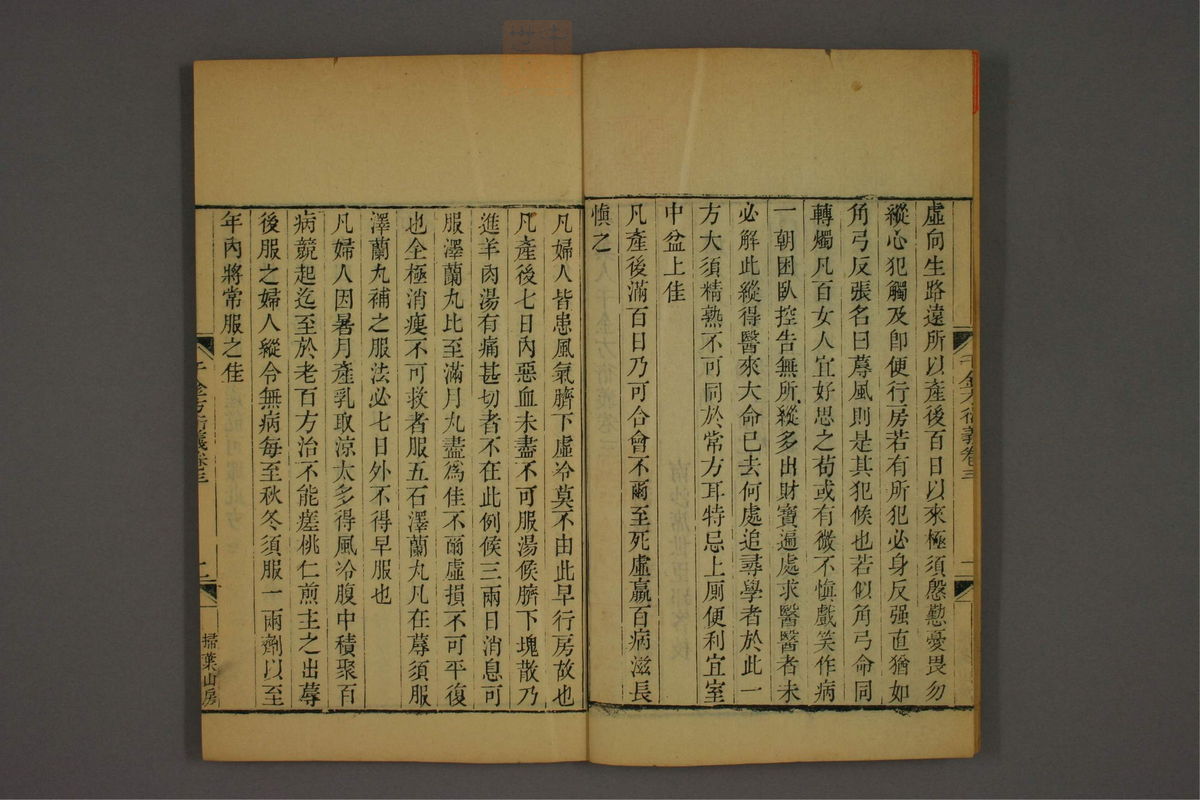 千金方衍義卷三
虛向生路遠所以產後百日以來極須慇懃憂畏勿
縱心犯觸及卽便行房若有所犯必身反强直猶如
角弓反張名曰蓐風則是其犯候也若似角弓命同
轉燭凡百女人宜好思之苟或有微不愼戲笑作病
一朝困臥控告無所縱多出財寶遍處求醫醫者未
必解此縱得醫來大命已去何處追尋學者於此一
方大須精熟不可同於常方耳特忌上厠便利宜室
中盆上佳
凡產後滿百日乃可合會不爾至死虛羸百病滋長
愼之
凡婦人皆患風氣臍下虛冷莫不由此早行房故也
凡產後七日內惡血未盡不可服湯候臍下塊散乃
進羊肉湯有痛甚切者不在此例候三兩日消息可
服澤蘭丸比至滿月丸盡爲佳不爾虛損不可平復
也全極消瘦不可救者服五石澤蘭丸凡在蓐須服
澤蘭丸補之服法必七日外不得早服也
凡婦人因暑月產乳取涼太多得風冷腹中積聚百
病競起迄至於老百方治不能瘥桃仁煎主之出蓐
後服之婦人縱令無病每至秋冬須服一兩劑以至
年內將常服之佳
千金方衍義卷三
二
掃葉山房